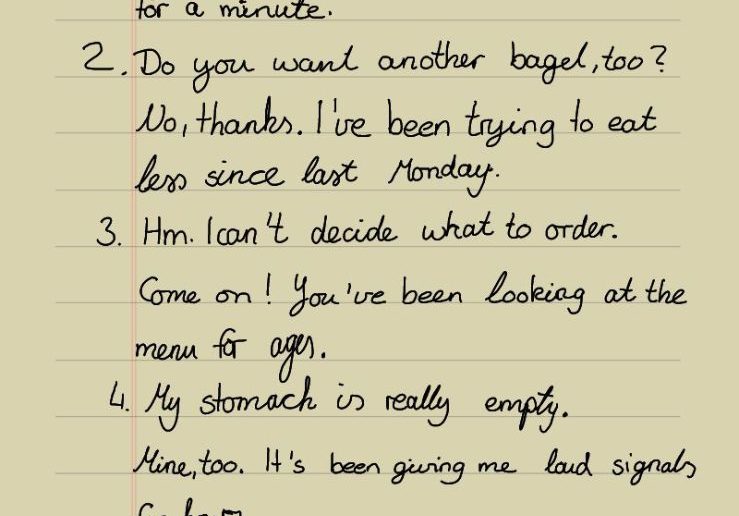 for a minute.
2. Do you want another bagel, too?
No, thanks. I've been trying to eat
less since last Monday.
3. Hm. I can't decide what to order.
Come on! You've been looking at the
menu for ages.
4. My stomach is really empty.
Mine, too. It's been giving me loud signals